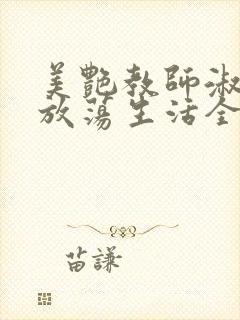 美艷教師淑
放蕩生活全
苗謙